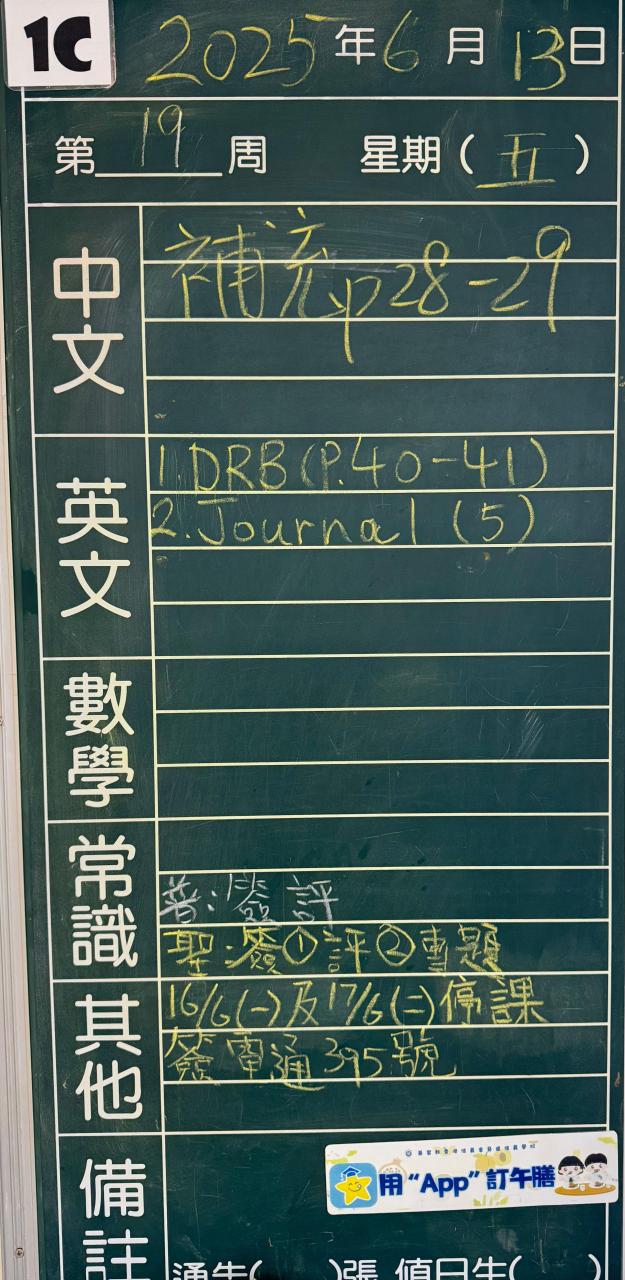 1C
2025年6月13日
第19周 星期(五)
中文
補充p28-29
英文
1.DRB(P.40-41)
2.Journal (5)
數學
常識
普:簽評
聖:簽①評②專題
其他
16/6(一)及17/6(二)停課
簽電通395號
備註
用“App”訂午膳
通告( )張 值日生( )